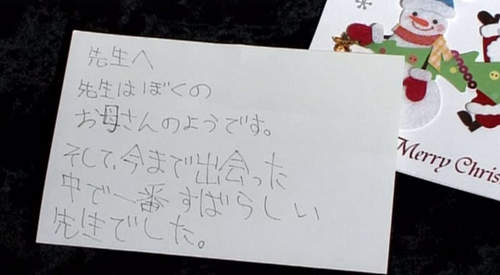 先生へ
先生はぼくの
お母さんのようです。
そして、今まで出会った
中で一番すばらしい
先生でした。
Merry Chris